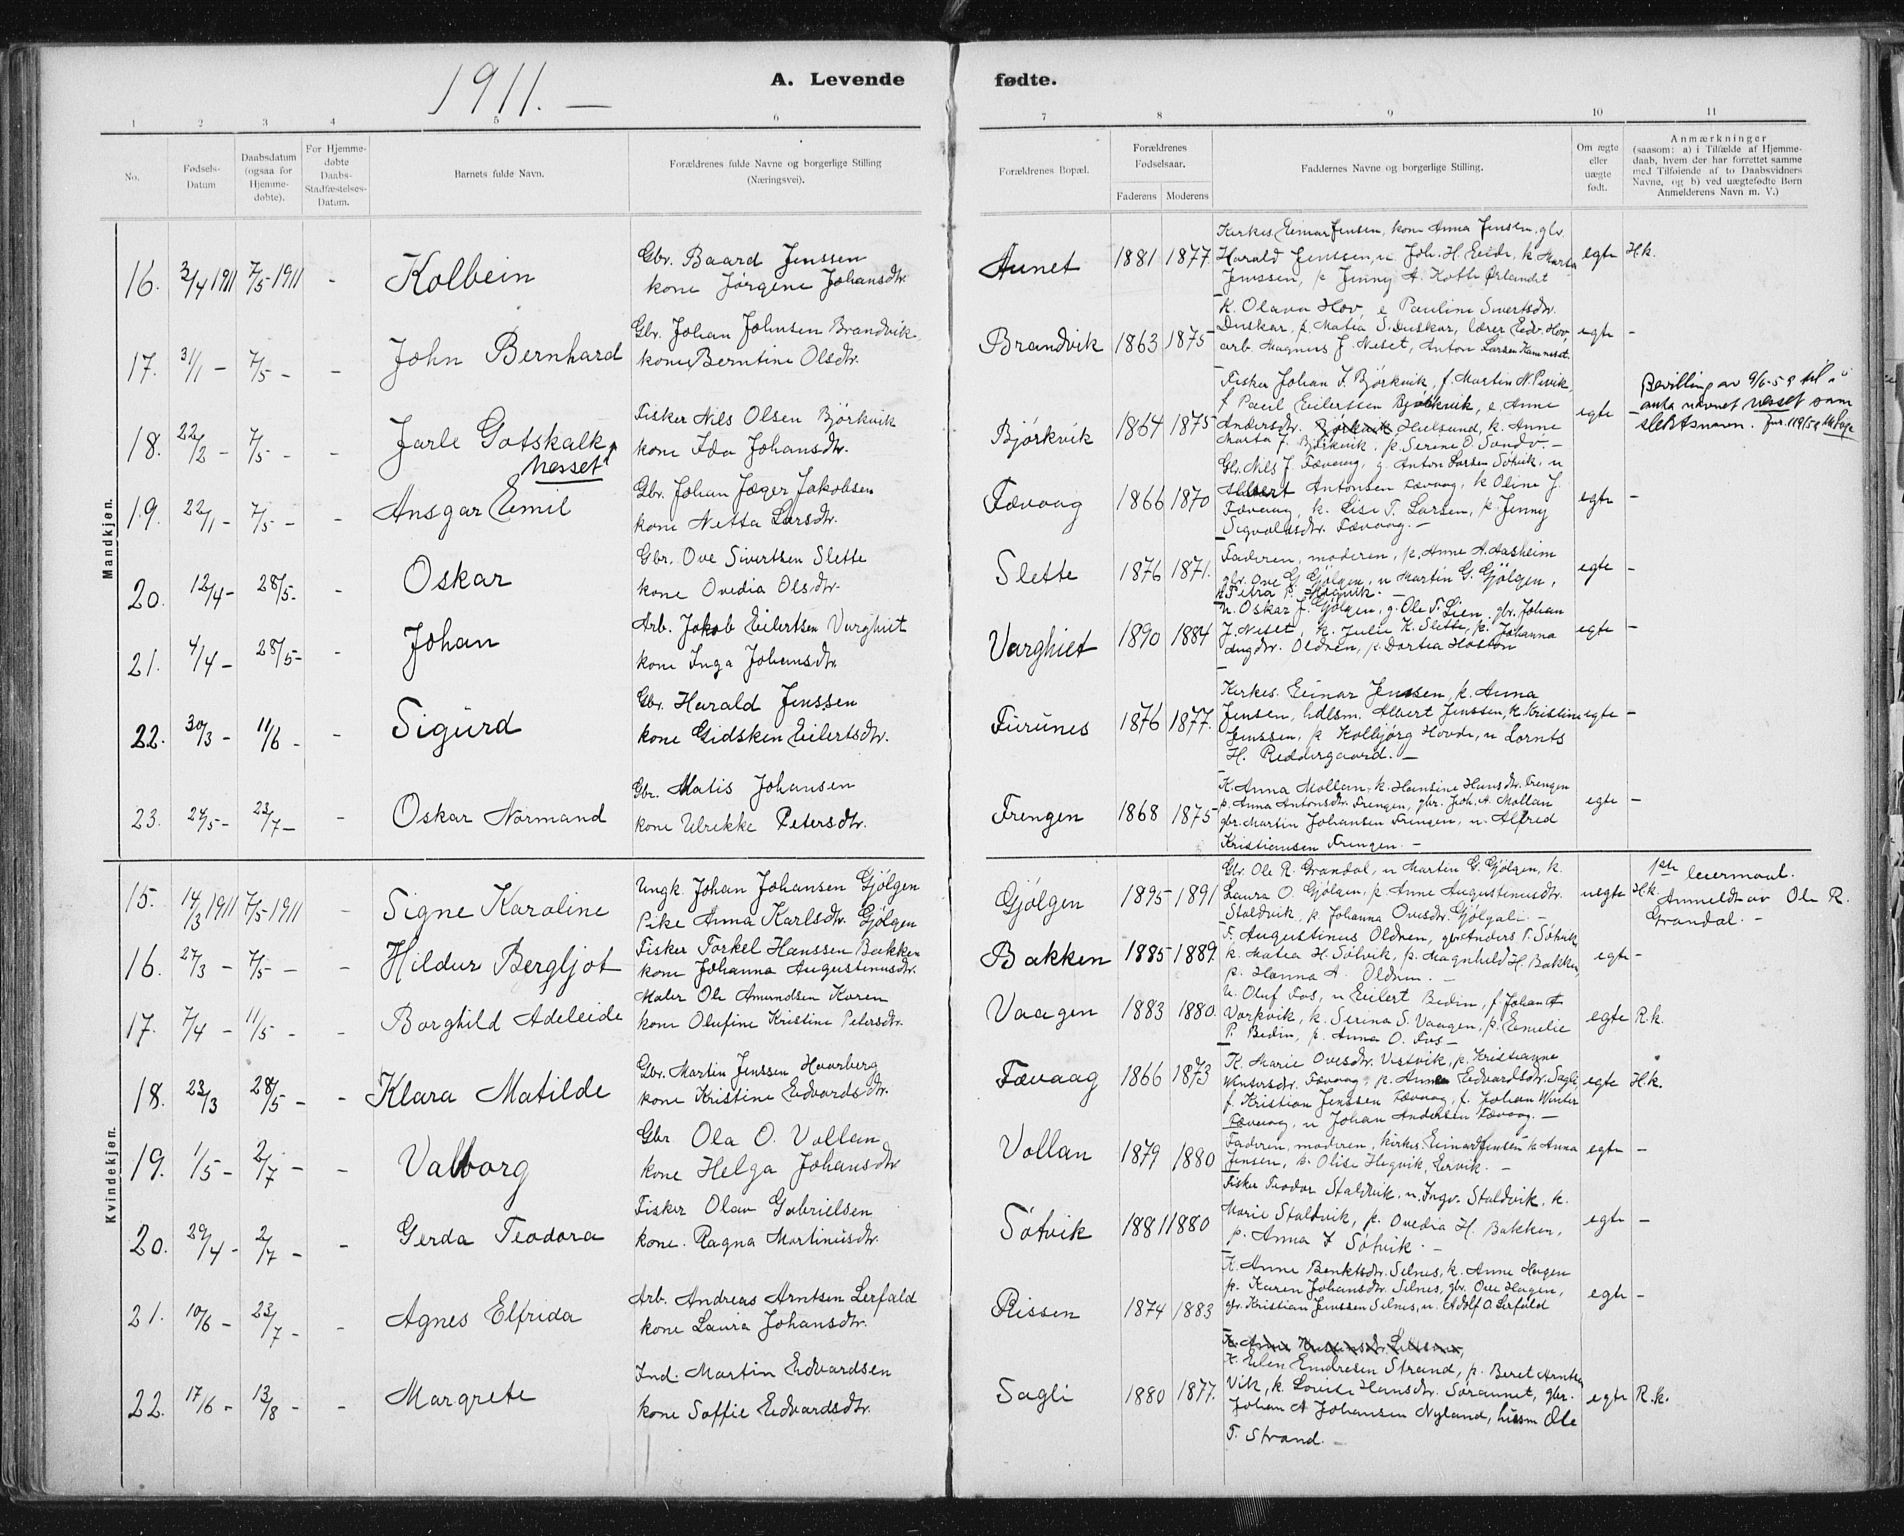 1911. —
A. Levende fødte.
1 2 3 4 5 6 7 8 9 10 11
No.
Fødsels-
Datum
Daabsdatum
(ogsaa for
Hjemme-
døbte).
For Hjemme-
døbte
Daabs-
Stadfæstelses-
Datum.
Barnets fulde Navn.
Forældrenes fulde Navne og borgerlige Stilling
(Næringsvei).
Forældrenes Bopæl.
Forældrenes
Fødselsaar.
Faderens Moderens
Faddernes Navne og borgerlige Stilling.
Om ægte
eller
uægte
født.
Anmærkninger
(saasom: a) i Tilfælde af Hjemme-
daab, hvem der har forrettet samme
med Tilføiende af to Daabsvidners
Navne, og b) ved uægtefødte Børn
Anmelderens Navn m. V.)
Mandkjøn.
16. 3/4 1911 7/5-1911 - Kolbein
Gbr. Baard Jenssen
kone Jørgine Johansdtr.
Aunet 1881 1877
Kirkes. Einar Jensen, kone Anna Jensen, gbr.
Harald Jenssen, u Joh. H. Eide, k Marta
Jenssen, p Jenny A. Koth Ørlandet
egte H.k.
17. 31/1 - 7/5 - - John Bernhard
Gbr. Johan Johnsen Brandvik
kone Berntine Olsdtr.
Brandvik 1863 1875
K. Olava Hov, e Pauline Sivertsdtr.
Duskar, p. Matea S. Duskar, lærer Edv. Hov,
arb. Magnus J. Neset, Anton Larsen
egte -
18. 22/2 - 7/5 - - Jarle Gotskalk
Nesset
Fisker Nils Olsen Bjørkvik
kone Ida Johansdtr.
Bjørkvik 1864 1875
Fisker Johan J. Bjørkvik, f. Martin N.
f Paul Eilertsen Bjørkvik, e. Anne
Andersdtr. Hulsund, k. Anne
Marta J. Bjørkvik, p. Serine O. Sandv. -
egte
Bevilling av 9/6-59 til å
anta navnet Nesset som
slektsnavn.
19. 22/1 - 7/5 - - Ansgar Emil
Gbr. Johan Jæger Jakobsen
kone Netta Larsdtr.
Fævaag 1866 1870
Gbr. Nils J. Fævaag, g. Anton Larsen Søtvik, u
Albert Antonsen Fævaag, k Oline J.
Fævaag, k. Lise T. Larsen, p. Jenny
Sigvaldsdtr. Fævaag. -
egte -
20. 12/4 - 28/5 - - Oskar
Gbr. Ove Sivertsen Slette
kone Ovedia Olsdtr.
Slette 1876 1871.
Faderen, moderen, p. Anne A. Aasheim
gbr. Ove G. Gjølgen, u Martin G. Gjølgen,
k Petra P. -
egte -
21. 4/4 - 28/5 - - Johan
Arb. Jakob Eilertsen Varghiet
kone Inga Johansdtr.
Varghiet 1890 1884
U. Oskar J. Gjølgen, g. Ole T. Lien, gbr. Johan
J. Neset, k. Julie K. Slette, p. Johanna
Augdtr. Oldren, p. Dortea Hoston
egte -
22. 30/3 - 11/6 - Sigurd
Gbr. Harald Jenssen
kone Gidsken Eilertsdtr.
Furunes 1876 1877.
Kirkes. Einar Jensen, p. Anna
Jensen, hdlsm. Albert Jenssen, k. Kristine
Jenssen, p. Kolbjørg Hovde, u Lornts
H. Reddergaard. -
egte -
23. 24/5 - 23/7 - - Oskar Normand
Gbr. Matis Johansen
kone Ulrikke Petersdtr.
Frengen 1868 1875
K. Anna Mollan, k. Hansine Hansdtr. Frengen
p. Anna Antonsdtr. Frengen, gbr. Joh. A. Mollan
gbr. Martin Johansen Frengen, u. Alfred
Kristiansen Frengen. -
egte -
Kvindekjøn.
15. 14/3 1911 7/5-1911 - Signe Karoline
Ungk. Johan Johansen Gjølgen
Pike Anna Karlsdtr. Gjølgen
Gjølgen 1895 1891
Gbr. Ole R. Grandal, u Martin G. Gjølgen, k.
Laura O. Gjølgen, p. Anne Augustinusdtr.
Staldvik, p. Johanna Ovesdtr. Gjølgali. -
uegte H.k.
1ste leiermaal.
Anmeldt av Ole R.
Grandal. -
16. 27/3 - 7/5 - - Hildur Bergljot
Fisker Torkel Hanssen Bakken
kone Johanna Augustinusdtr.
Bakken 1885 1889.
F. Augustinus Oldren, gbr. Anders T. Søtvik
k. Matea H. Søtvik, p. Magnhild H. Bakken,
p. Hanna A. Oldren. -
egte -
17. 7/4 - 11/5 - - Borghild Adeleide
Maler Ole Amundsen Karen
kone Olufine Kristine Petersdtr.
Vaagen 1883 1880.
U. Oluf Fos, u Eilert Bedin, f. Johan A
Varkvik, k. Serina S. Vaagen, p. Emelie
P. Bedin, p. Anna O. Fos -
egte R.k.
18. 23/3 28/5 - - Klara Matilde
Gbr. Martin Jenssen Haarberg
kone Kristine Edvardsdtr.
Fævaag 1866 1873
K. Marie Ovesdtr. Vestvik, p. Kristianne
Wintersdtr. Fævaag, p. Anne Edvardsdtr. Sagli,
f. Kristian Jenssen Fævaag, f. Johan Winter
Fævaag, u Johan Andersen Fævaag. -
egte H.k.
19. 1/5 - 2/7 - - Valborg
Gbr. Ola O. Vollan
kone Helga Johansdtr
Vollan 1879 1880
Faderen, moderen, kirkes. Einar Jensen k Anna
Jensen, p. Olise Hegvik, Ervik. -
egte -
20. 29/4 - 2/7 - - Gerda Teodora
Fisker Olav Gabrielsen
kone. Ragna Martinusdtr.
Søtvik 1881 1880
Fisker Teodor Staldvik, u. Ingv. Staldvik, k.
Marie Staldvik, p. Ovedia H. Bakken,
p. Anna J Søtvik. -
egte -
21. 10/6 - 23/7 - - Agnes Elfrida
Arb. Andreas Arntsen Lerfald
kone Laura Johansdtr.
Rissen 1874 1883
K. Anne Benktsdtr. Selnes, k. Anne Hagen
p. Karen Johansdtr. Selnes, gbr. Ove Hagen,
gbr. Kristian Jenssen Selnes, u. Adolf O. Lerfald
egte -
22. 17/6 - 13/8 - - Margrete
Ind. Martin Edvardsen
kone Soffie Edvardsdtr.
Sagli 1880 1877.
K. Elen Endresen Strand, p. Beret Arntsen
Vik, k. Louise Hansdtr. Søraunet, gbr.
Johan A Johansen Nyland, husm Ole
T. Strand. -
egte R.k.